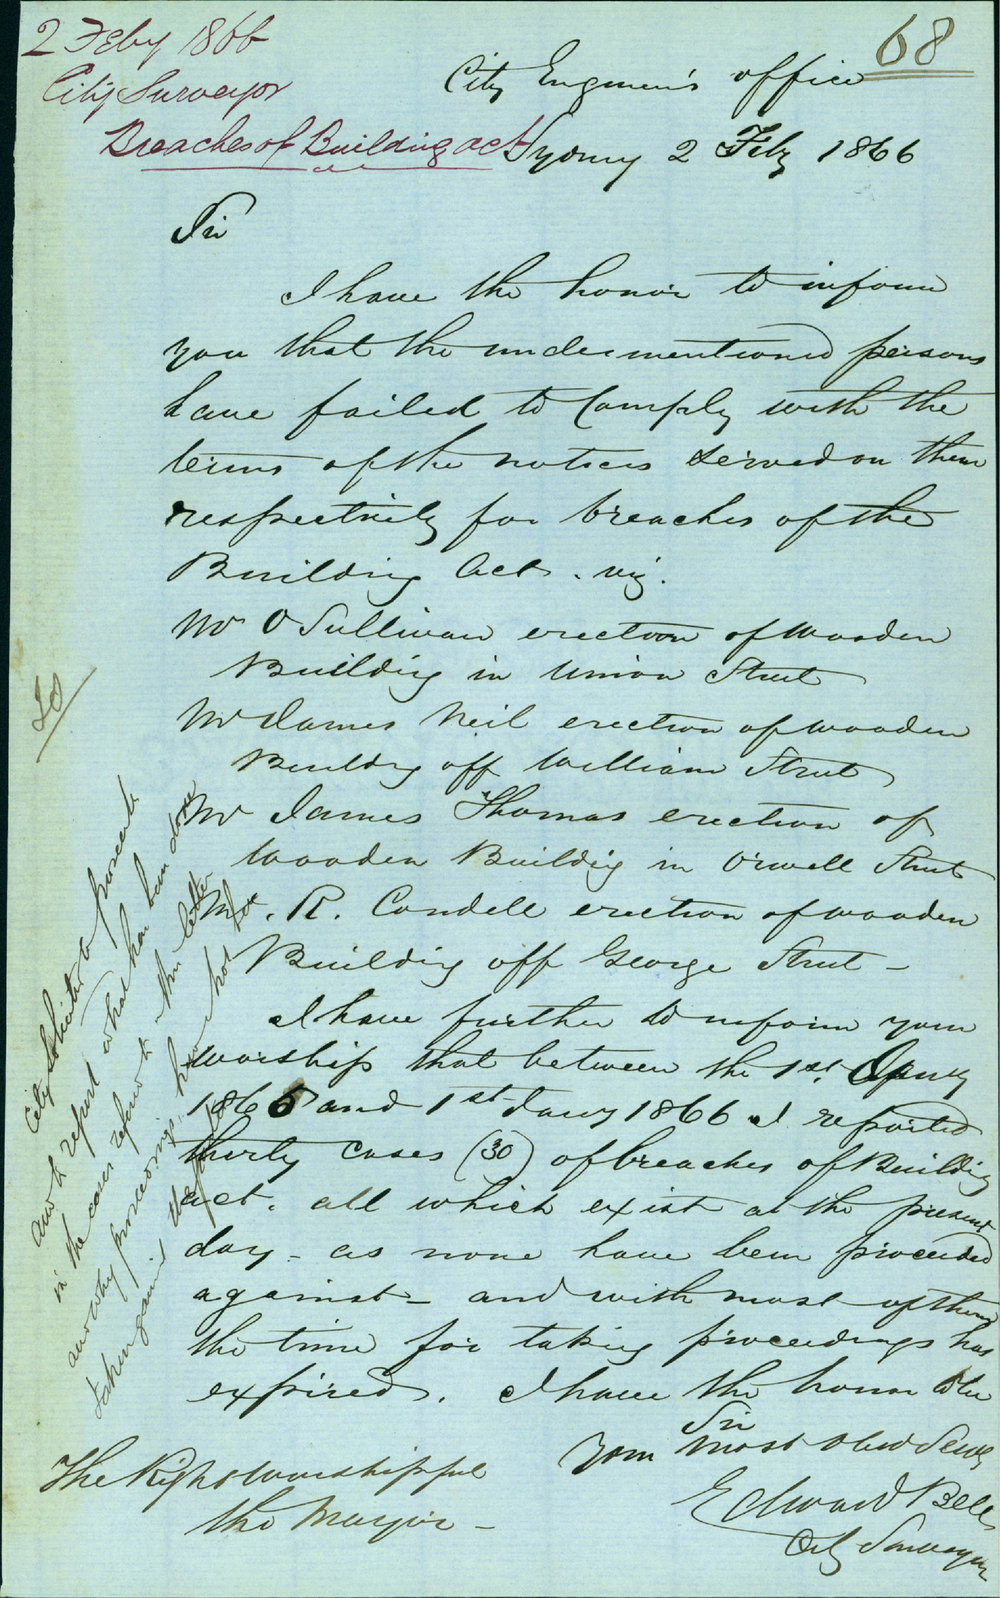 2 Feby 1866
City Surveyor
Breaches of Building act
68
City Engineer's office
Sydney 2 Feby 1866
Sir
I have the honor to inform
you that the undermentioned persons
have failed to Comply with the
terms of the notices served on them
respectively for breaches of the
Building Act. viz.
Mr O Sullivan erection of wooden
Building in Union Street
Mr James Neil erection of wooden
Building off William Street
Mr James Thomas erection of
wooden Building in Orwell Street
Mr. R. Condell erection of wooden
Building off George Street -
I have further to inform your
worship that between the 1st.
1865 and 1st Jany 1866 I reported
thirty cases (30) of breaches of Building
act. all which exist at the present
day - as none have been proceeded
against - and with most of them
the time for taking proceedings has
expired. I have the honor to be
Sir
Your most obed Servt
Edward Bell
City Surveyor
The Right Worshipful
the Mayor -
City Solicitor to prosecute
and to report what has been done
in the cases referred to in this letter
and why proceedings have not been
taken against the